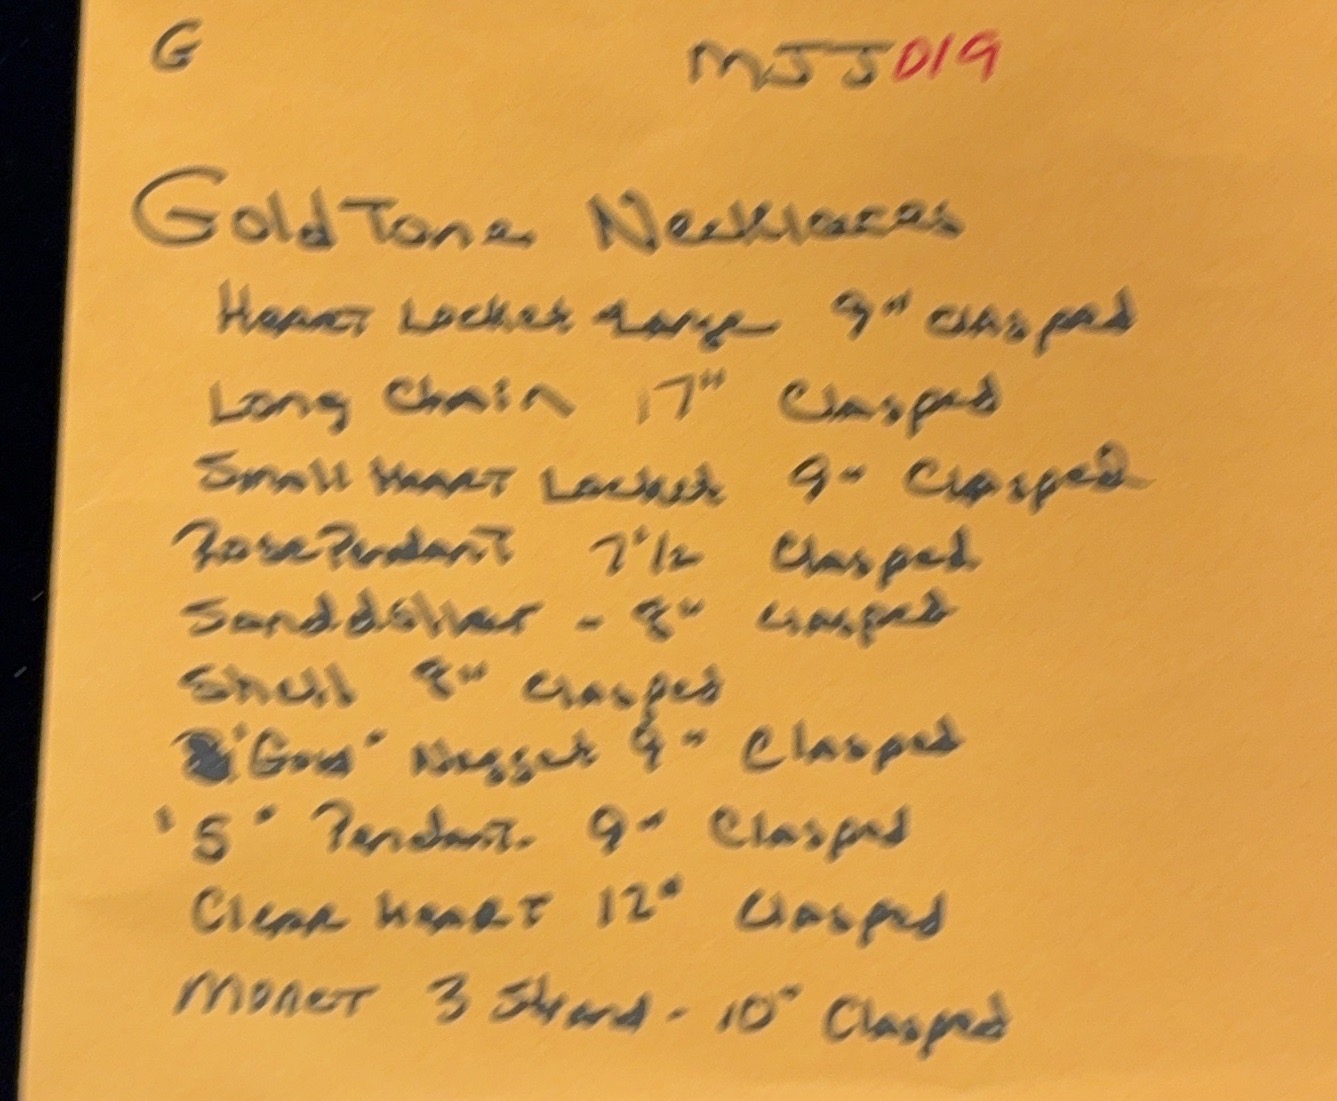 G MJJ019
Gold Tone Necklaces
Heart Locket Large 9" Clasped
Long Chain 17" Clasped
Small Heart Locket 9" Clasped
Rose Pendant 7 1/2 Clasped
Sanddollar - 8" Clasped
Shell 8" Clasped
"Gold" Nugget 9" Clasped
"S" Pendant. 9" Clasped
Clear Heart 12" Clasped
Monet 3 Strand - 10" Clasped